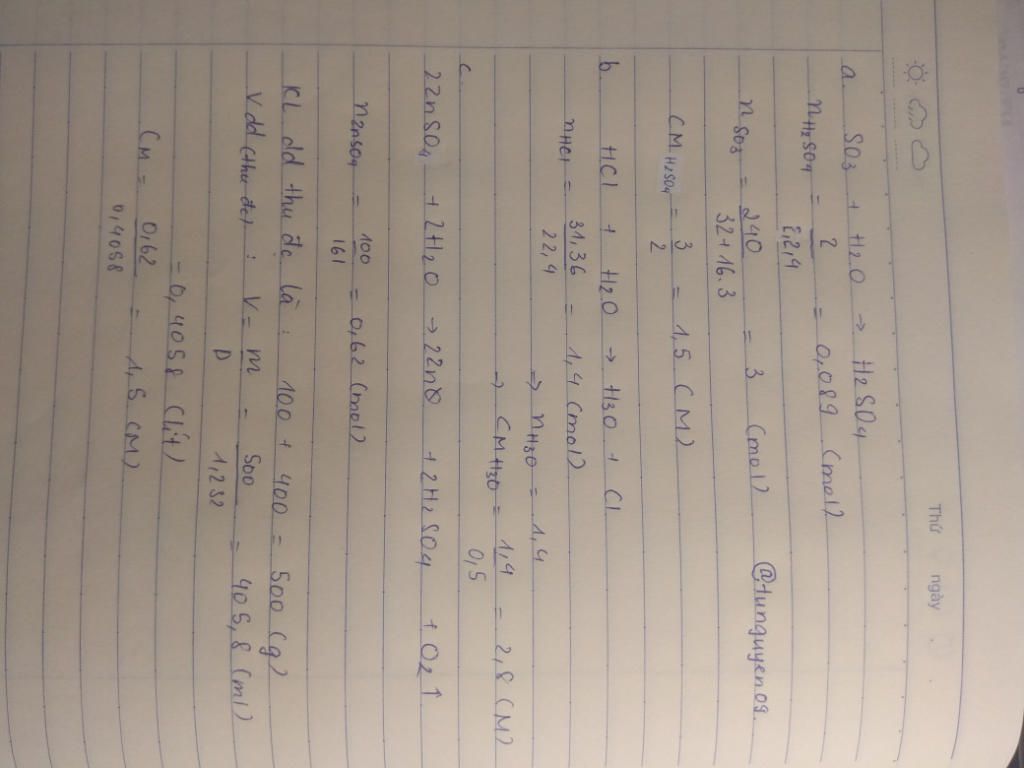 Thứ ngày
a. SO3 + H2O → H2SO4
nH2SO4 = 2/22,4 = 0,089 (mol)
nSO3 = 240/32+16.3 = 3 (mol) @tunguyen09.
CM H2SO4 = 3/2 = 1,5 (M)
b. HCl + H2O → H3O + Cl
nHCl = 31,36/22,4 = 1,4 (mol)
⇒ nH3O = 1,4
→ CM H3O = 1,4/0,5 = 2,8 (M)
c.
2ZnSO4 + 2H2O → 2ZnO + 2H2SO4 + O2↑
nZnSO4 = 100/161 = 0,62 (mol)
KL dd thu đc là : 100 + 400 = 500 (g)
Vdd (thu đc) : V = m/D = 500/1,232 = 405,8 (ml)
= 0,4058 (lít)
CM = 0,62/0,4058 = 1,5 (M)